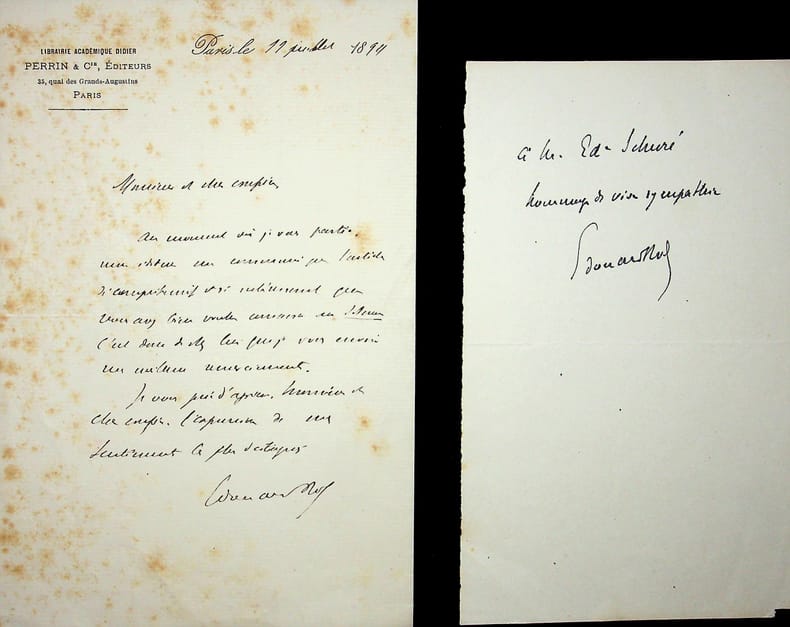 LIBRAIRIE ACADÉMIQUE DIDIER
PERRIN & Cie, ÉDITEURS
35, quai des Grands-Augustins
PARIS
Paris le juillet 1894
Monsieur et cher confrère,
Au moment où je vais partir,
mon éditeur me communique l'article
si si que
vous avez bien voulu consacrer au
C'est donc de que je vous envoie
mes meilleurs remerciements.
Je vous prie d'agréer, Monsieur et
cher confrère, l'expression de mes
sentiments les plus distingués
Edouard Rod
à M. Ed. Schuré
hommage de vive sympathie
Edouard Rod